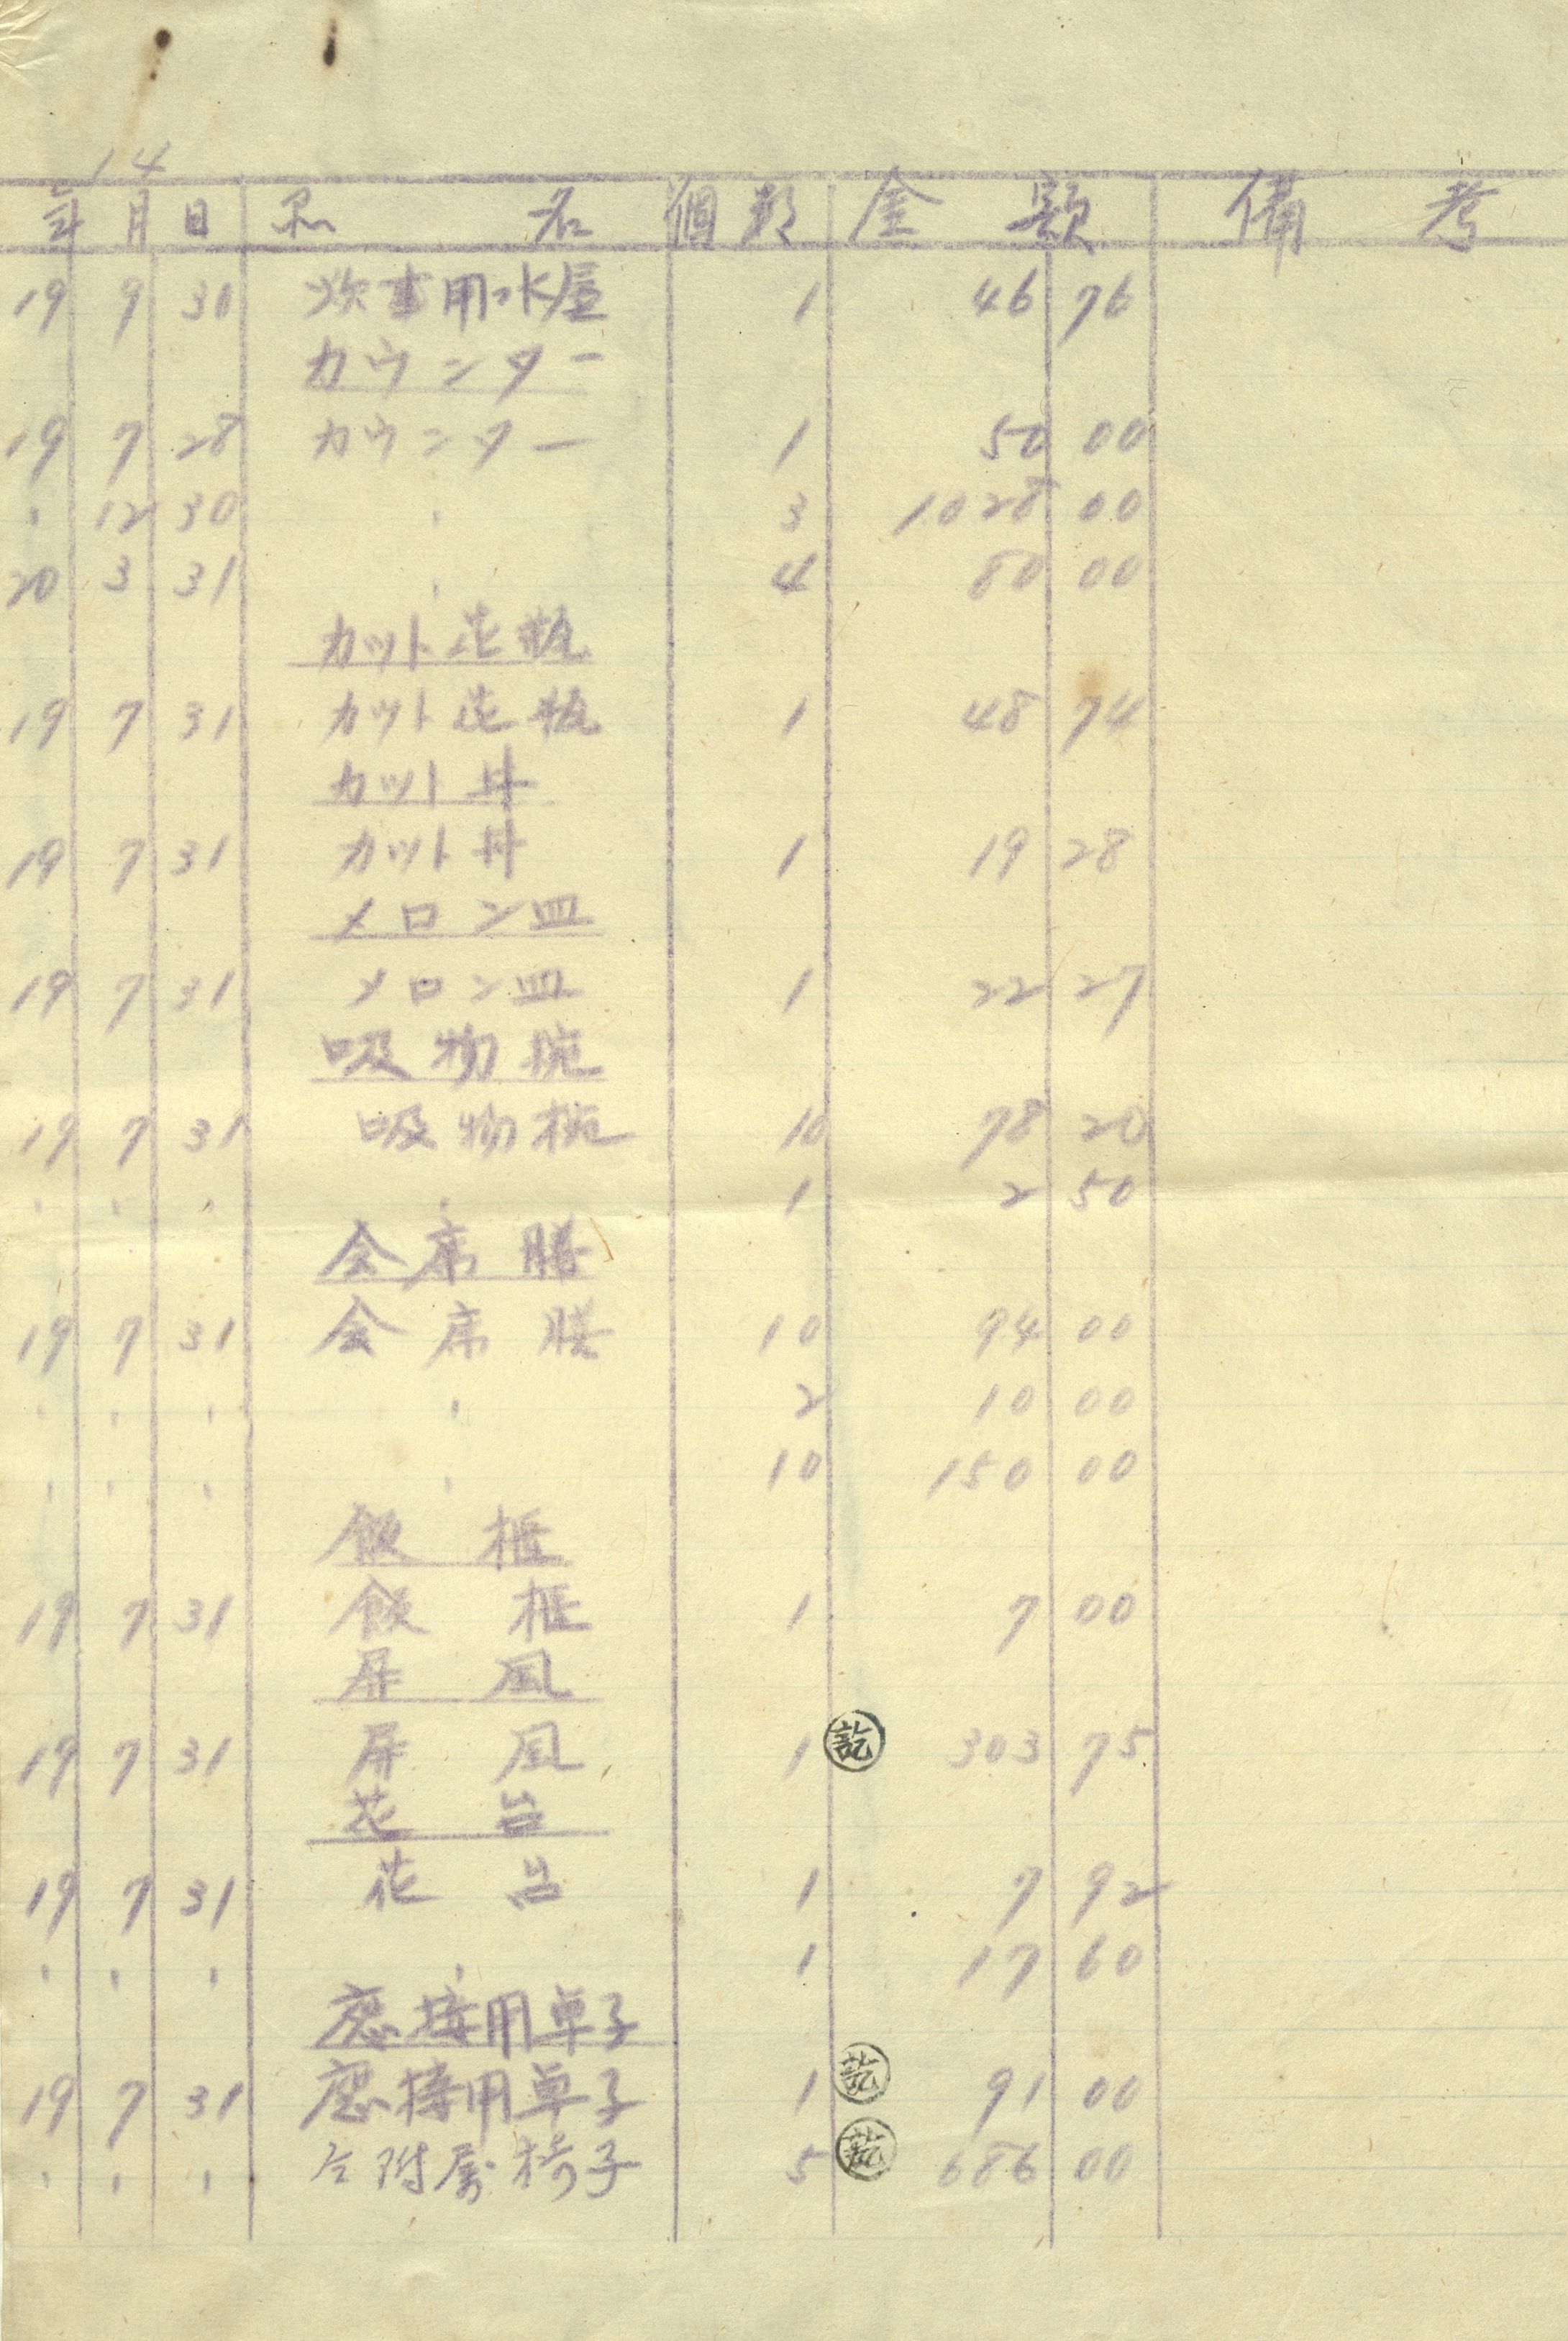 14
年 月 日 品 名 個数 金 額 備 考
19 9 30 炊事用水屋 1 46 76
カウンター
19 7 28 カウンター 1 50 00
〃 12 30 〃 3 1028 00
20 3 31 〃 4 80 00
カット花瓶
19 7 31 カット花瓶 1 48 74
カット丼
19 7 31 カット丼 1 19 28
メロン皿
19 7 31 メロン皿 1 22 27
吸物椀
19 7 31 吸物椀 10 78 20
〃 〃 〃 〃 1 2 50
会席膳
19 7 31 会席膳 10 94 00
〃 〃 〃 〃 2 10 00
〃 〃 〃 〃 10 150 00
飯柜
19 7 31 飯柜 1 7 00
屏風
19 7 31 屏風 1 訖 303 75
花台
19 7 31 花台 1 7 92
〃 〃 〃 〃 1 17 60
應接用卓子
19 7 31 應接用卓子 1 訖 91 00
〃 〃 〃 仝附属椅子 5 訖 686 00